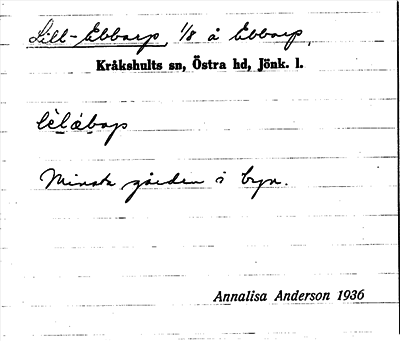 Lill-Ebbarp, 1/8 å Ebbarp,
Kråkshults sn, Östra hd, Jönk. l.
Minsta gården i byn.
Annalisa Anderson 1936